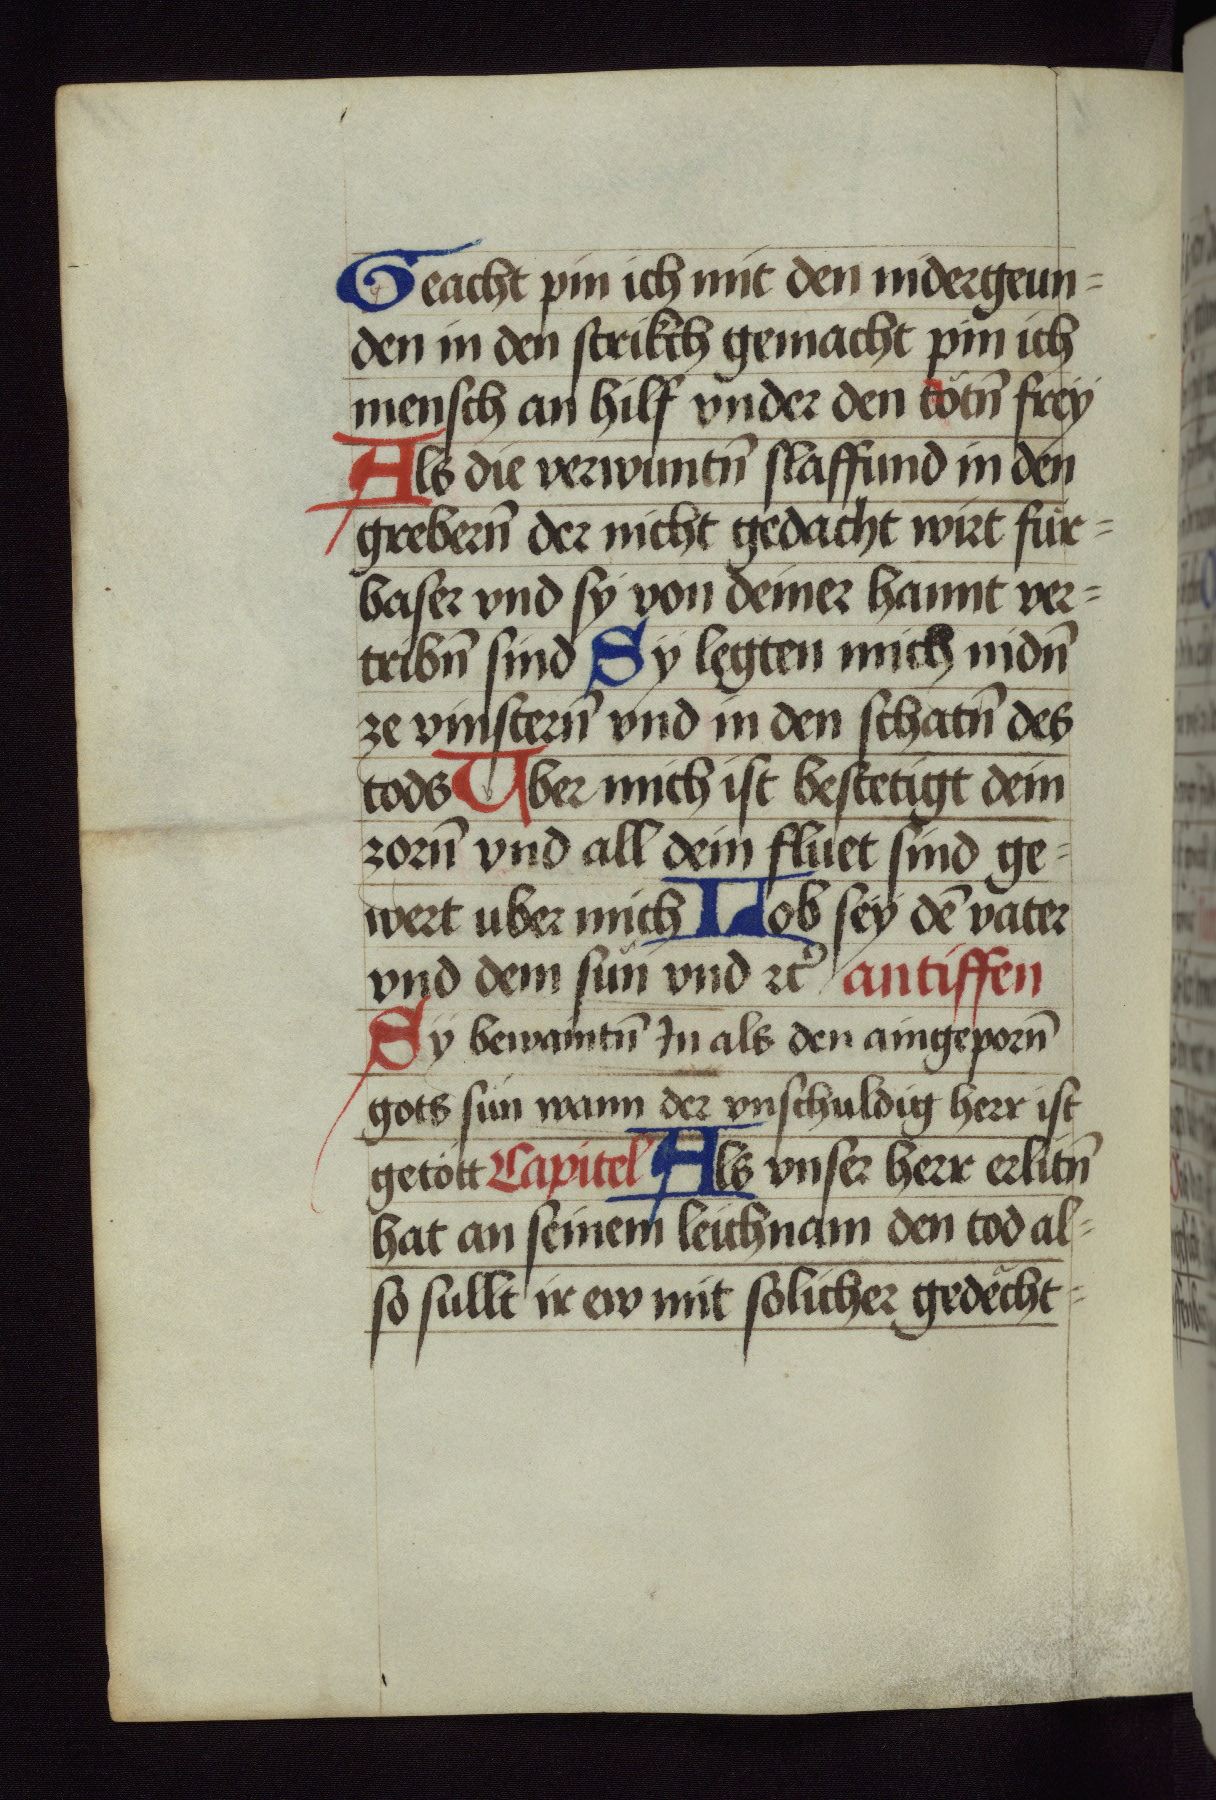 Geacht pin ich mit den nidergeun=
den in den strikch gemacht pin ich
mensch an hilf vnder den tötn̄ frey
Als die verwuntn̄ slaffund in den
grebern̄ der nicht gedächt wirt für=
baser vnd sy von deiner hannt ver=
tribn̄ sind Sy legten mich nidn̄
ze vinstern̄ vnd in den schatn̄ des
tods Vber mich ist bestetigt dein
zorn̄ vnd all dein flüet sind ge=
wert uber mich Lob sey dē vater
vnd dem sun vnd ꝛc̄ antiffen
Sy bewaintn̄ In als den aingeporn̄
gots sun wann der vnschuldig herr ist
getött Capitel Als vnser herr erlitn̄
hat an seinem leichnam den tod al=
so sullt ir ew mit solicher gedëcht=